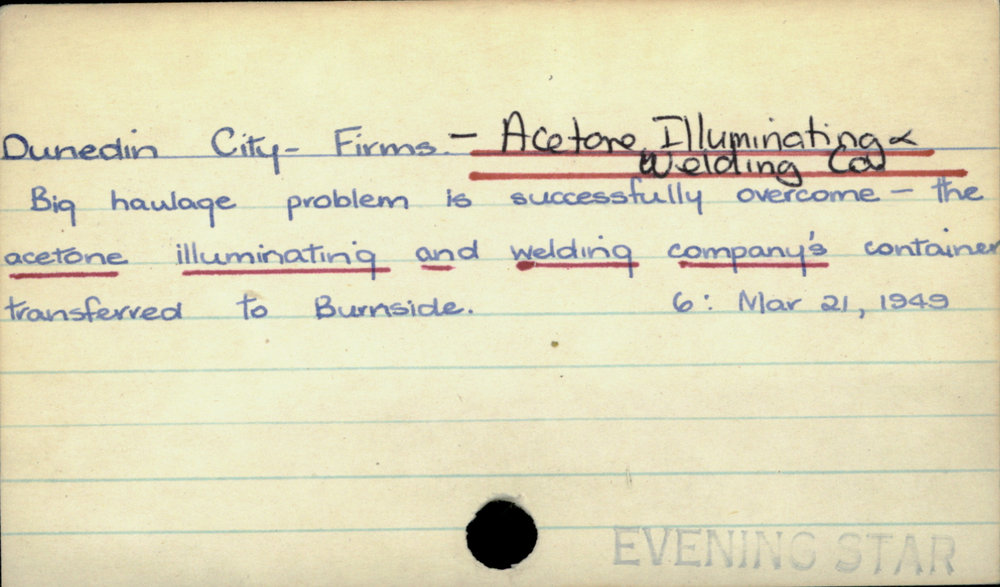 Dunedin City- Firms. - Acetone Illuminating &
Welding Co
Big haulage problem is successfully overcome - the
acetone illuminating and welding company's container
transferred to Burnside. 6: Mar 21, 1949
EVENING STAR